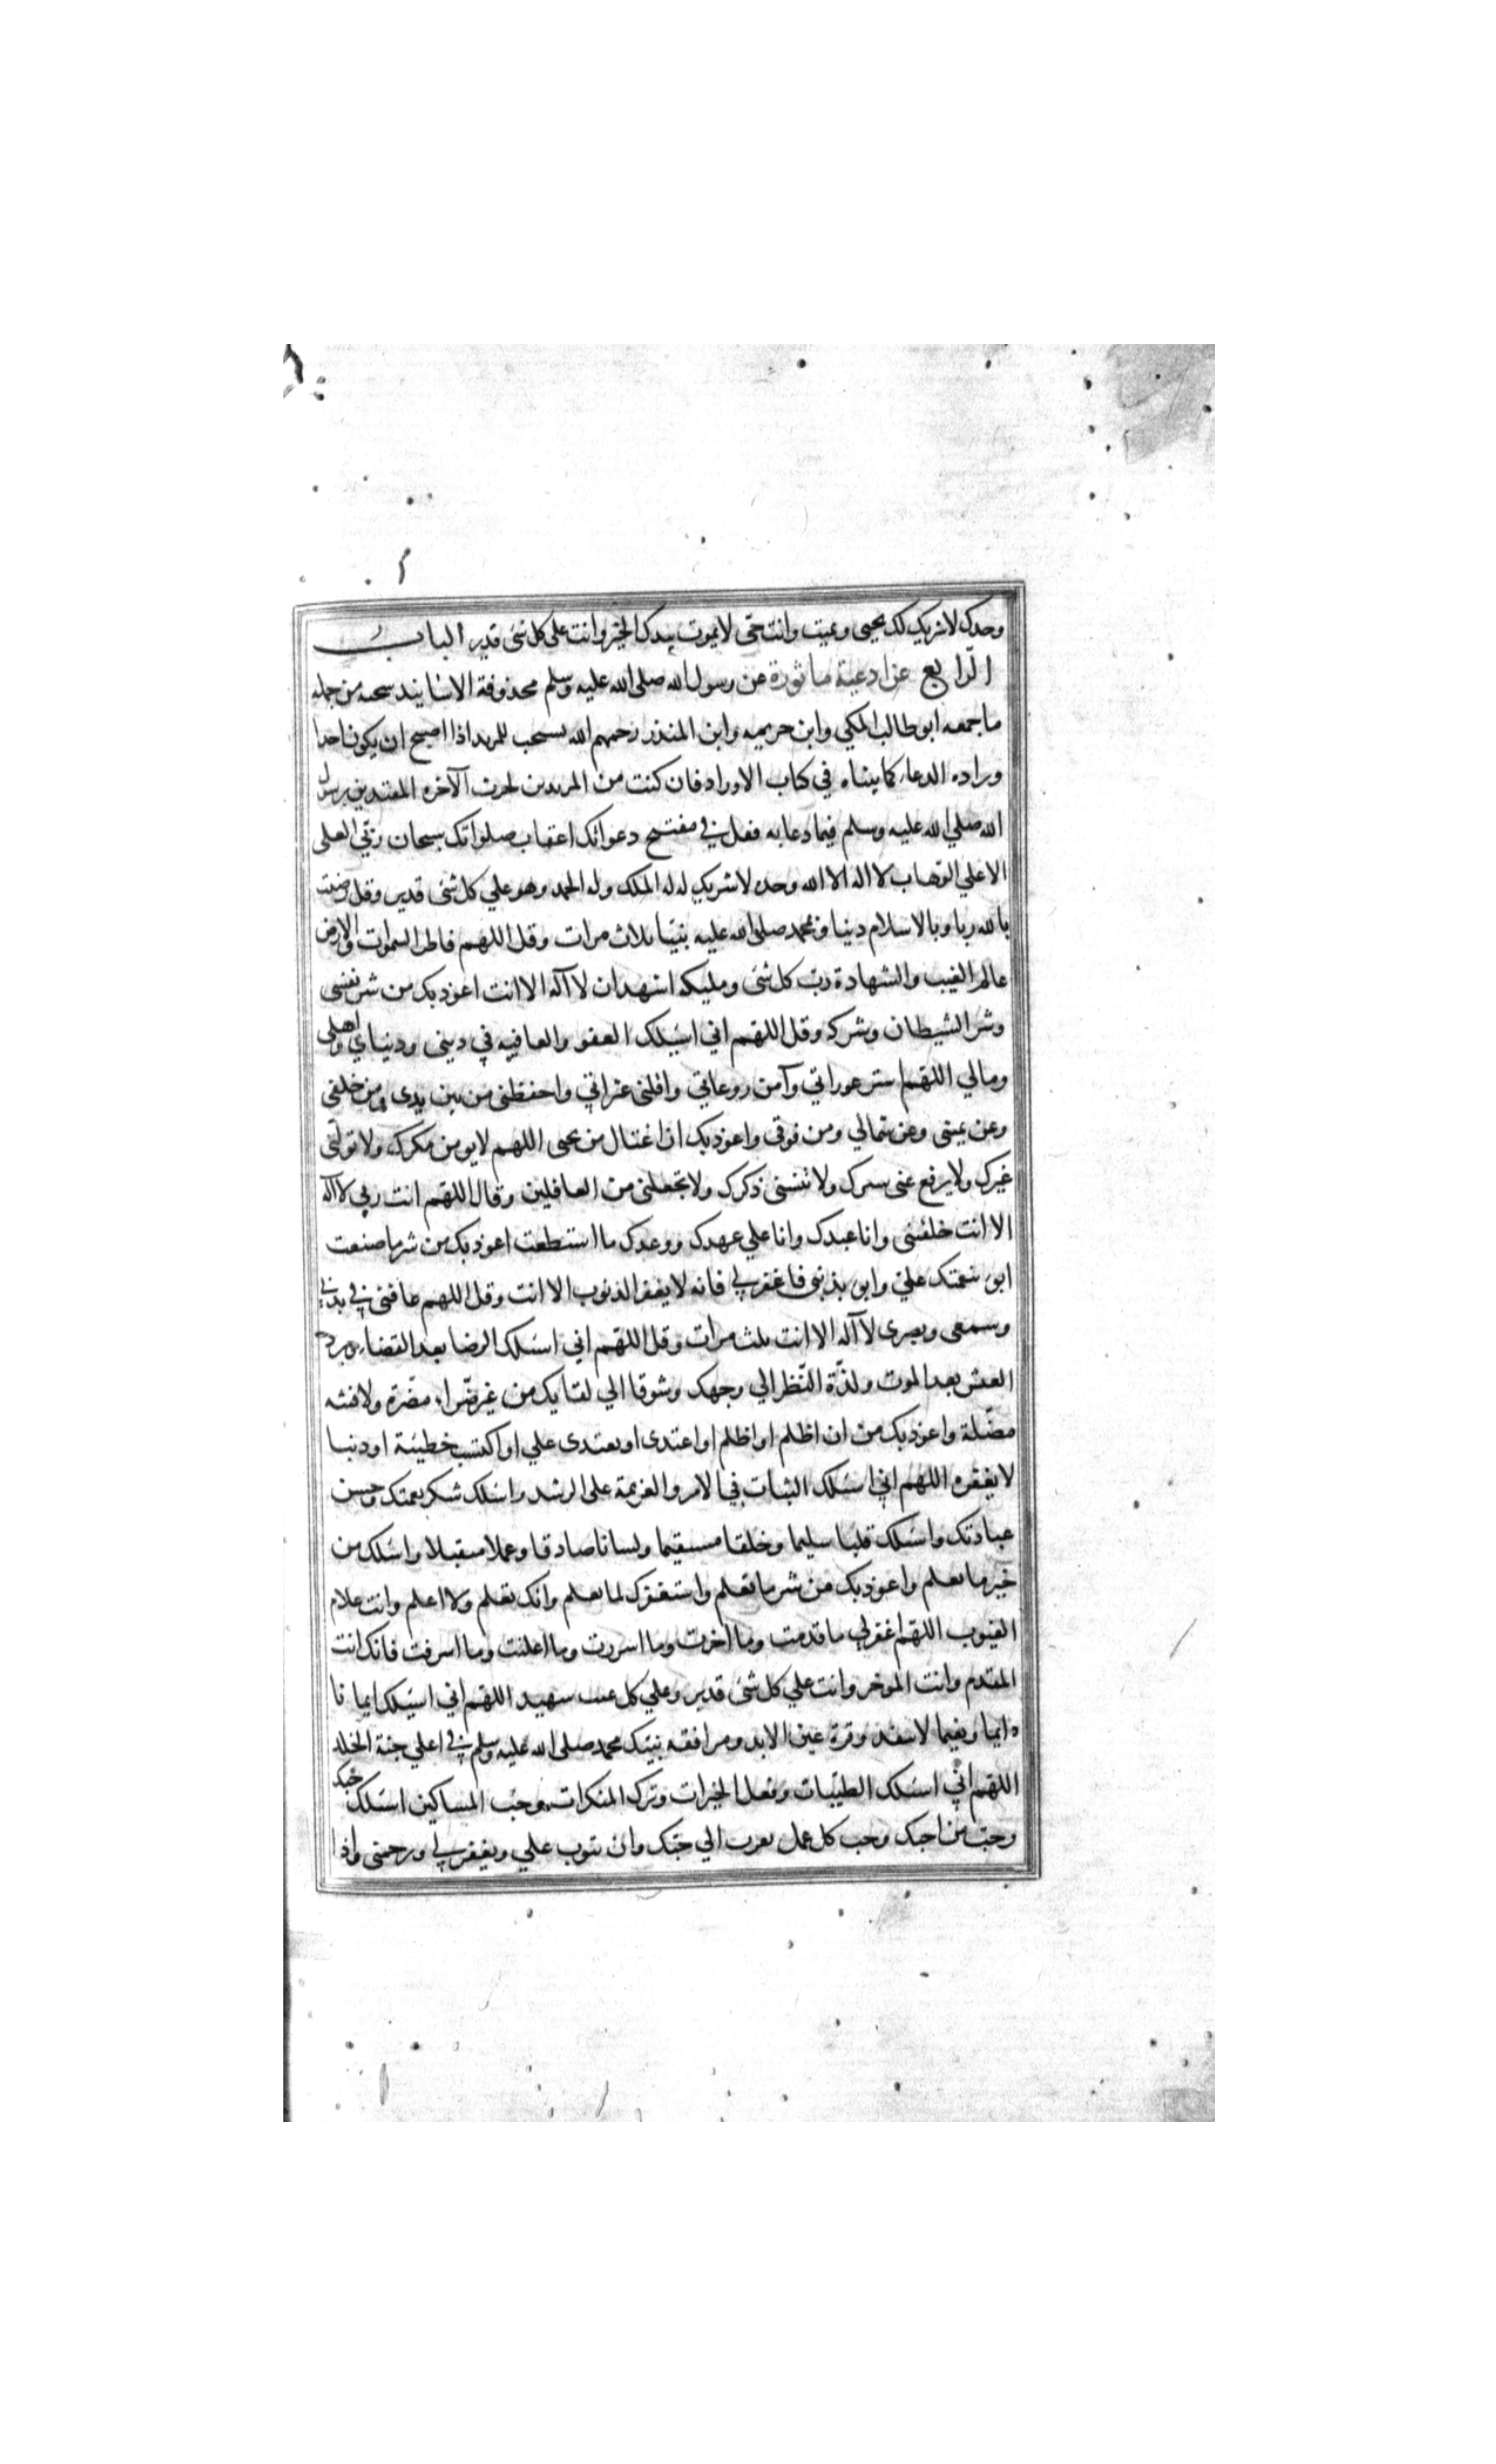 وحدك لا شريك لك يحيى ويميت وانت حى لا يموت بيدك الخير وانت على كل شئ قدير الباب
الرابع عن ادعية ماثورة عن رسول الله صلى الله عليه وسلم محذوفة الاسانيد من جمله
ما جمعه ابو طالب المكي وابن حريمه وابن المنذر رحمهم الله يستحب للمريد اذا اصبح ان يكون احدا
وراده الدعاء كما بيناه في كتاب الاوراد فان كنت من المريدين لحرث الآخره المقتدين برسول
الله صلي الله عليه وسلم فيما دعا به فقل في مفتتح دعواتك اعقاب صلواتك سبحان ربي العلى
الاعلي الوهاب لا اله الا الله وحده لا شريك له له الملك وله الحمد وهو علي كل شئ قدير وقل رضيت
بالله ربا وبالاسلام دينا وبمحمد صلى الله عليه نبيا ثلاث مرات وقل اللهم فاطر السموات والارض
عالم الغيب والشهادة رب كل شئ ومليكه اشهد ان لا آله الا انت اعوذ بك من شر نفسى
وشر الشيطان وشركه وقل اللهم اني اسئلك العفو والعافيه في دينى ودنياي واهلى
ومالي اللهم استر عوراتي وآمن روعاتي واقلنى عثراتي واحفظنى من بين يدى ومن خلفى
وعن يمينى وعن شمالي ومن فوقى واعوذ بك ان اغتال من تحتى اللهم لا تومن مكرك ولا تولنى
غيرك ولا يرفع عنى سترك ولا تنسنى ذكرك ولا تجعلنى من الغافلين وقال اللهم انت ربي لا آله
الا انت خلقتنى وانا عبدك وانا علي عهدك ووعدك ما استطعت اعوذ بك من شر ما صنعت
ابو بنعمتك علي وابو بذنبى فاغفر لي فانه لا يغفر الذنوب الا انت وقل اللهم عافنى في بدني
وسمعى وبصرى لا آله الا انت ثلث مرات وقل اللهم اني اسئلك الرضا بعد القضاء وبرد
العيش بعد الموت ولذة النظر الي وجهك وشوقا الي لقايك من غير ضراء مضرة ولا فتنه
مضلة واعوذ بك من ان اظلم او اظلم او اعتدى او يعتدى علي او اكتسب خطيئة او ذنبا
لا يغفره اللهم اني اسئلك الثبات في الامر والعزيمة على الرشد واسئلك شكر نعمتك وحسن
عبادتك واسئلك قلبا سليما وخلقا مستقيما ولسانا صادقا وعملا متقبلا واسئلك من
خير ما تعلم واعوذ بك من شر ما تعلم واستغفرك لما تعلم وانك تعلم ولا اعلم وانت علام
الغيوب اللهم اغفر لي ما قدمت وما اخرت وما اسررت وما اعلنت وما اسرفت فانك انت
المقدم وانت الموخر وانت علي كل شئ قدير وعلي كل غيب شهيد اللهم اني اسئلك ايمانا
دايما ونعيما لا ينفد وقرة عين الابد ومرافقه نبيك محمد صلى الله عليه وسلم في اعلي جنة الخلد
اللهم اني اسئلك الطيبات وفعل الخيرات وترك المنكرات وحب المساكين اسئلك حبك
وحب من احبك وحب كل عمل يقرب الي حبك وان تتوب علي وتغفر لي وترحمنى واذا